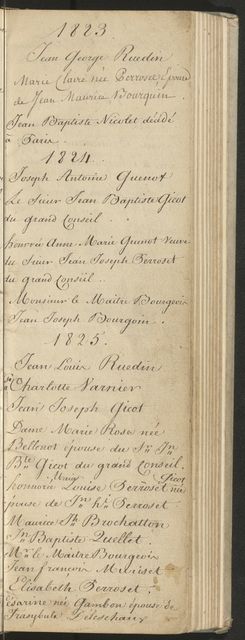 1823.
Jean George Ruedin
Marie Claire née Perroset Epouse
de Jean Maurice Bourquin.
Jean Baptiste Nicolet décédé
à Paris.
1824.
Joseph Antoine Guenot
Le Sieur Jean Baptiste Gicot
du grand Conseil.
honorée Anne Marie Guenot Veuve
du Sieur Jean Joseph Perroset
du grand Conseil.
Monsieur le Maitre Bourgeois
Jean Joseph Bourgoin.
1825.
Jean Louis Ruedin
Charlotte Varnier
Jean Joseph Gicot
Dame Marie Rosa née
Bellenot épouse du Sr. Jn.
Bte Gicot du grand Conseil.
Marie Gicot
honnorée Louise Perroset née
épouse de Jn. Perroset
Maurice Jh. Brochatton
Jn. Baptiste Quellet.
Mr. le Maitre Bourgeois
Jean françois Muriset
Elisabeth Perroset.
Césarine née Gambon épouse de
Frasybule Descheaux